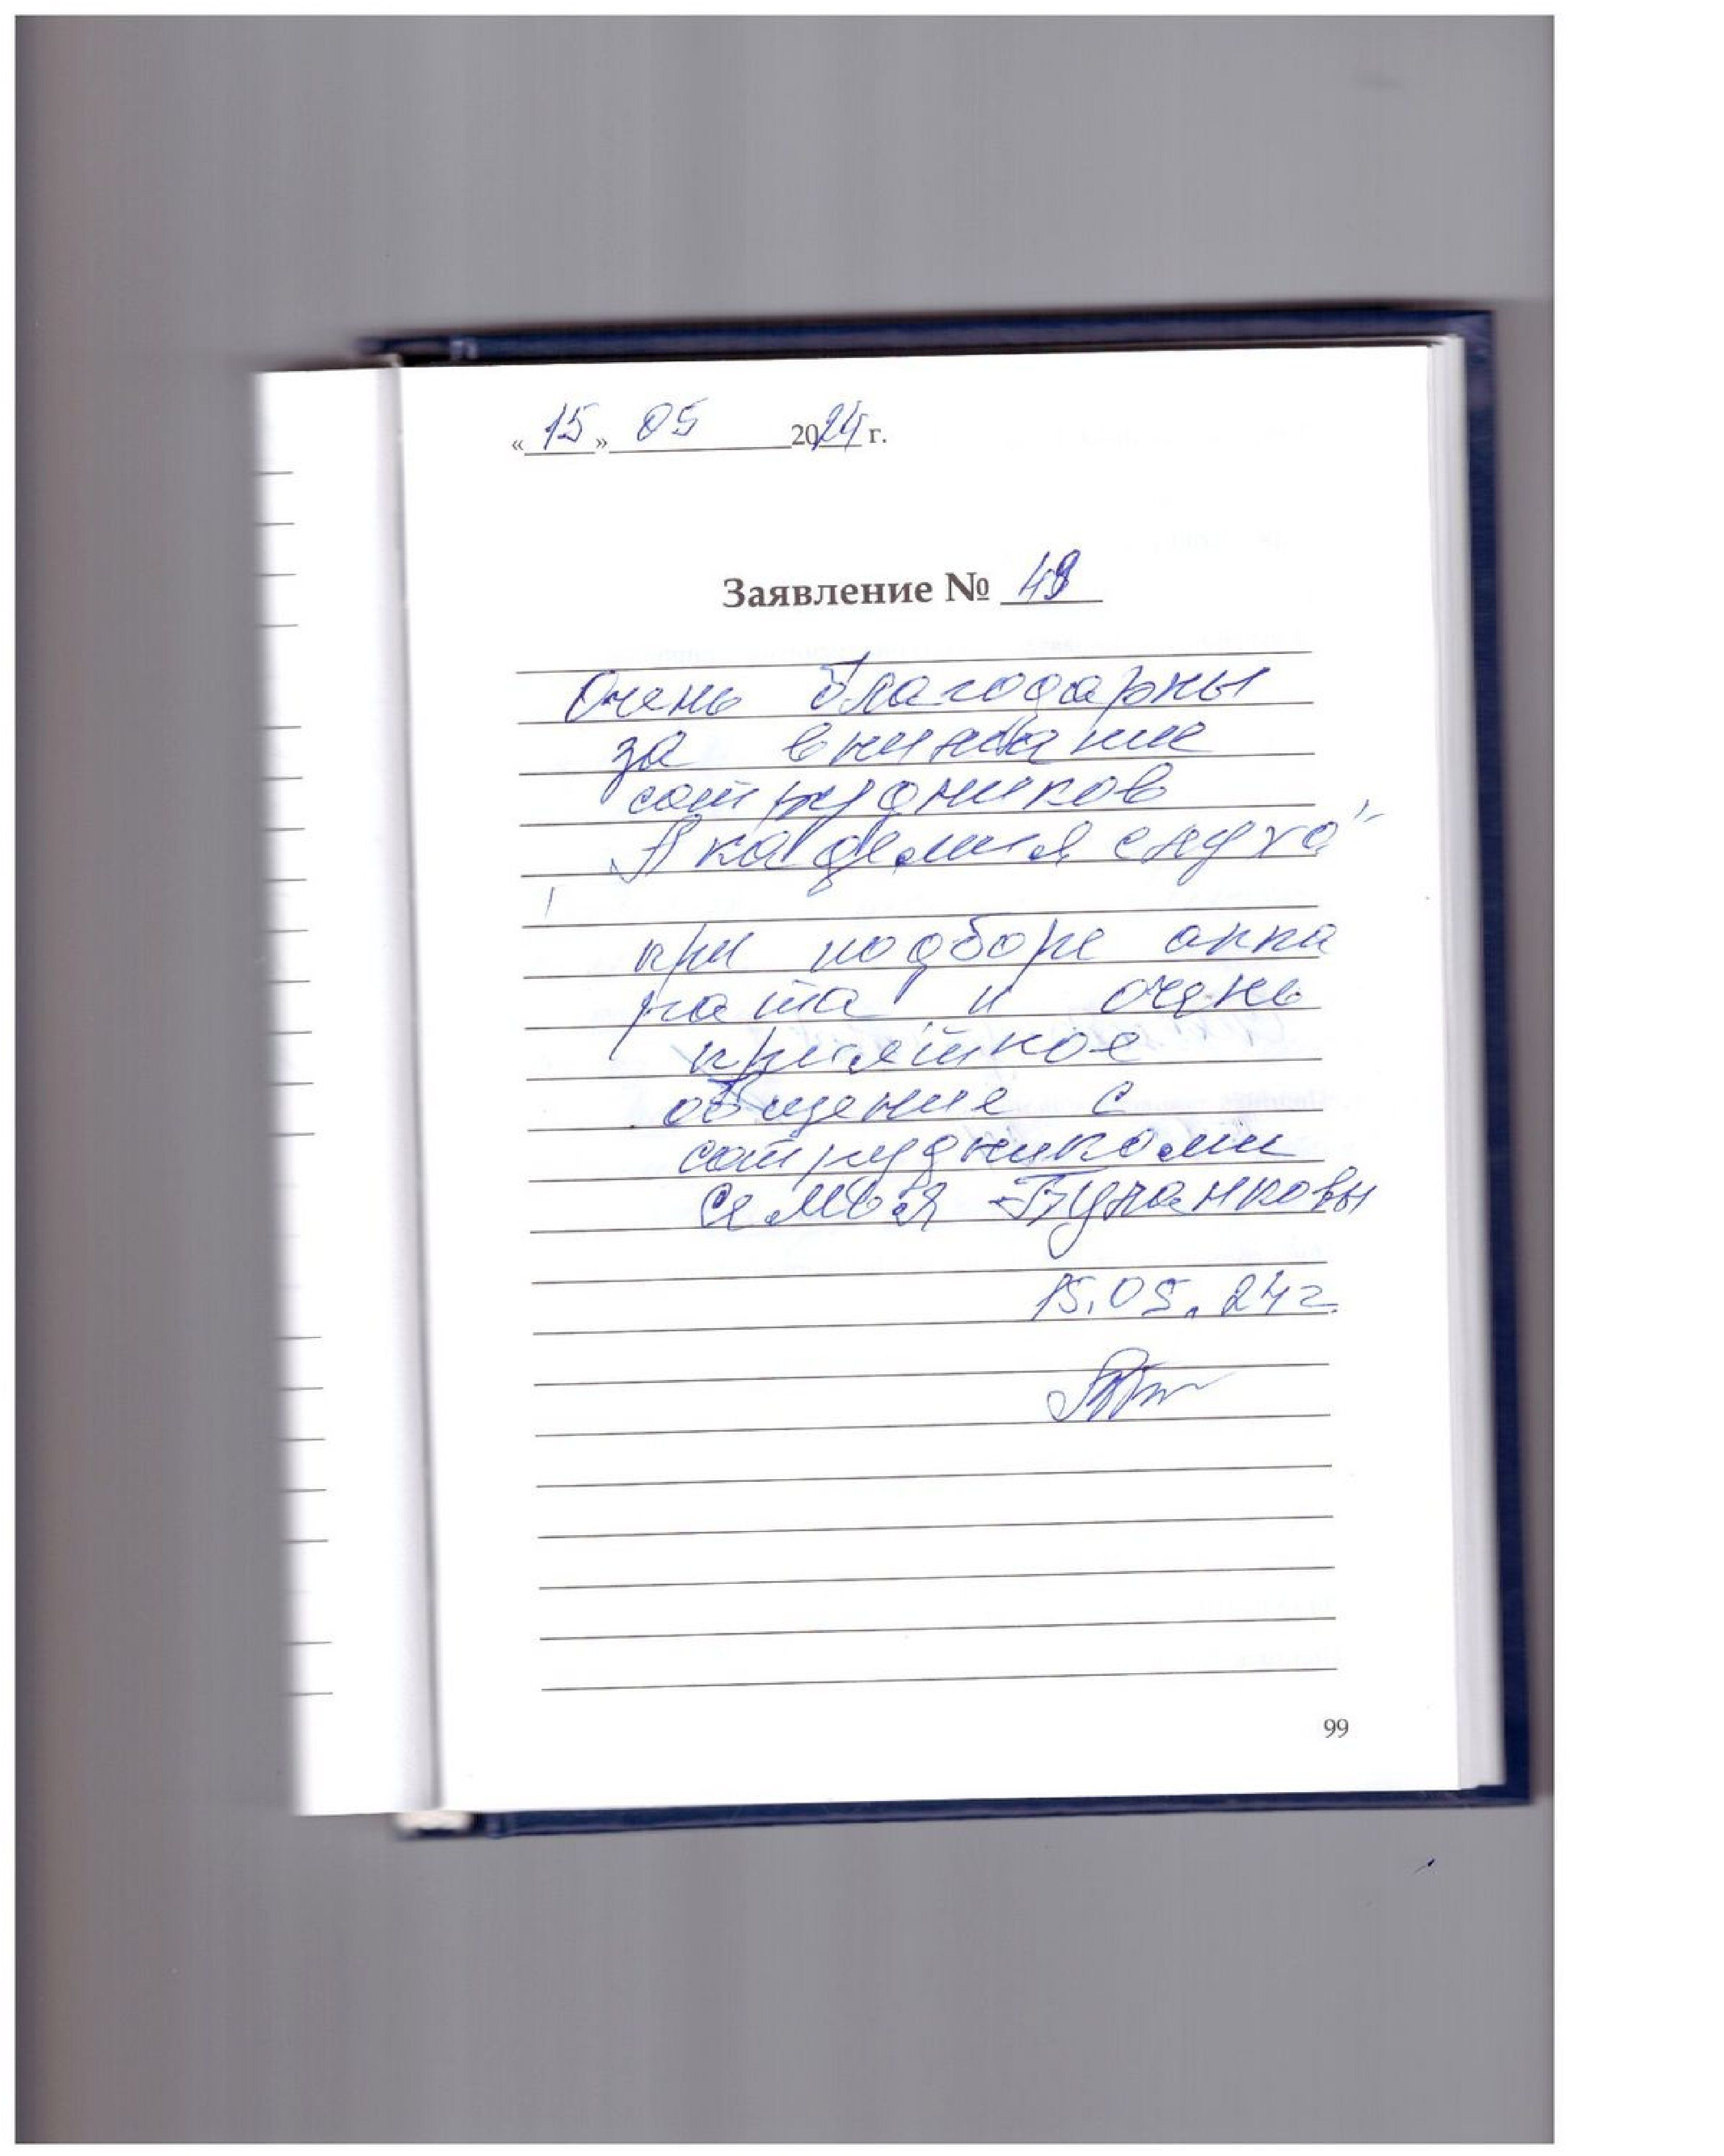 «15» 05 2024 г.
Заявление № 49
Очень благодарны
за внимание
сотрудников
„Академия слуха"
при подборе аппа
рата и очень
приятное
общение с
сотрудниками
семья
15.05.24г.
99